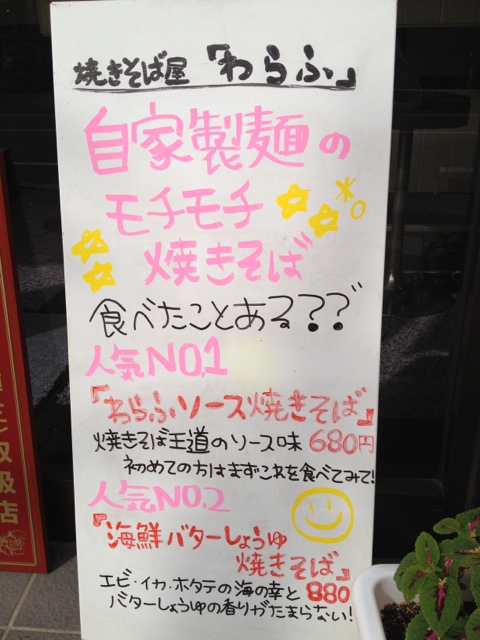 焼きそば屋「わらふ」
自家製麺の
モチモチ
焼きそば
食べたことある??
人気NO.1
『わらふソース焼きそば』
焼きそば王道のソース味 680円
初めての方はまずこれを食べてみて!
人気NO.2
『海鮮バターしょうゆ
焼きそば』
エビ・イカ・ホタテの海の幸と 880
バターしょうゆの香りがたまらない!
取扱店